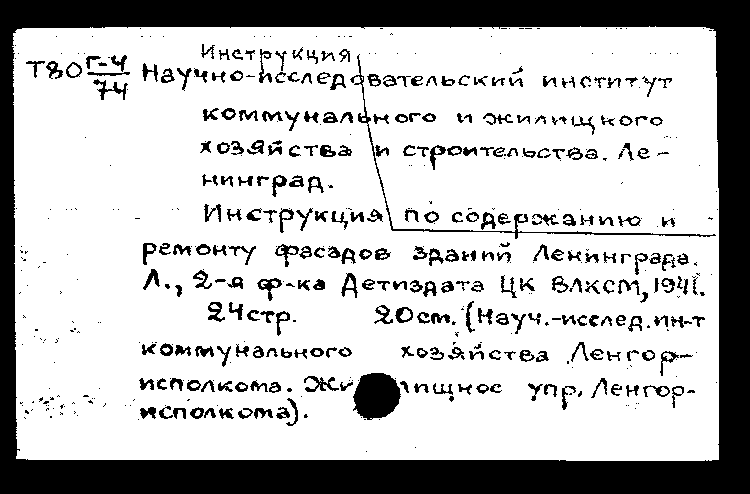 Инструкция
Т80 Г-4/74 Научно-исследовательский институт
коммунального и жилищного
хозяйства и строительства. Ле-
нинград.
Инструкция по содержанию и
ремонту фасадов зданий Ленинграда.
Л., 2-я ф-ка Детиздата ЦК ВЛКСМ, 1941.
24стр. 20см. (Науч.-исслед. ин-т
коммунального хозяйства Ленгор-
исполкома. Жилищное упр. Ленгор-
исполкома).